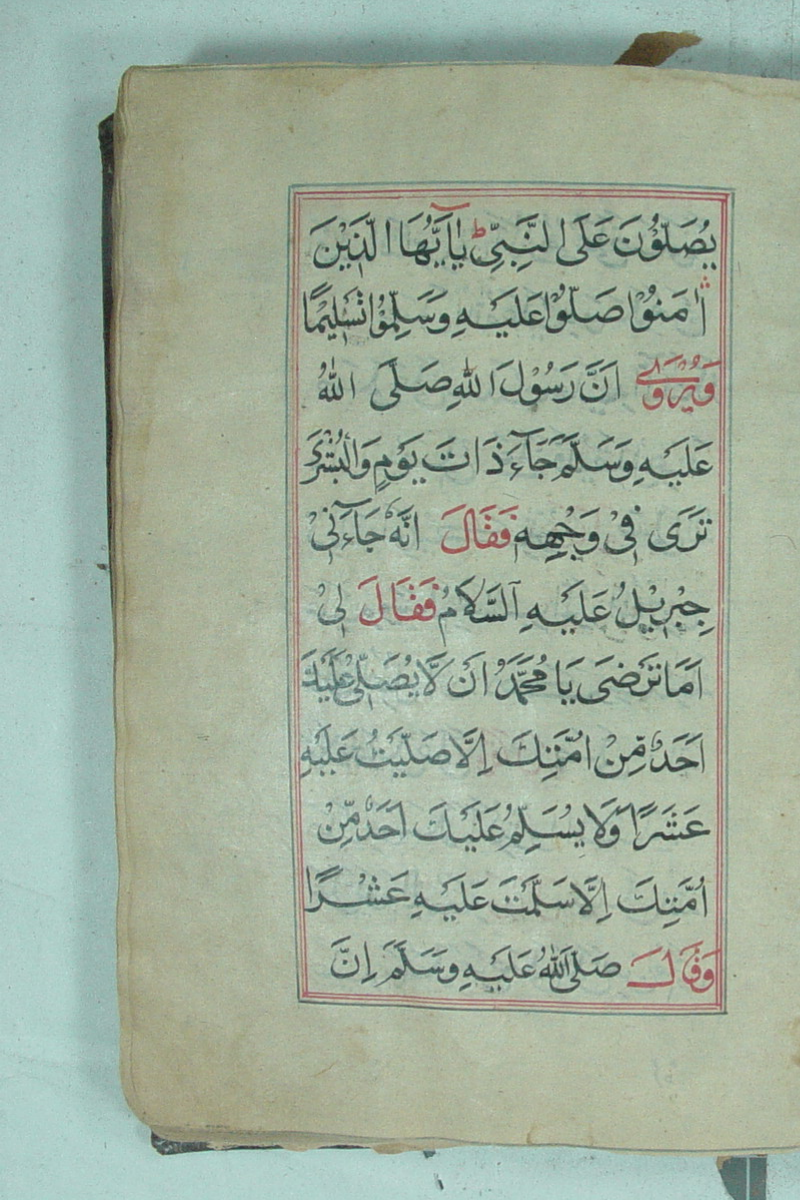 يُصَلُّوْنَ عَلَى النَّبِيِّ ط يٰاَيُّهَا الَّذِيْنَ
اٰمَنُوْا صَلُّوْا عَلَيْهِ وَسَلِّمُوْا تَسْلِيْمًا
وَيُرْوٰى اَنَّ رَسُوْلَ اللّٰهِ صَلَّى اللّٰهُ
عَلَيْهِ وَسَلَّمَ جَآءَ ذَاتَ يَوْمٍ وَالْبُشْرٰى
تَرَى فِيْ وَجْهِهٖ فَقَالَ اِنَّهٗ جَآءَنِيْ
جِبْرِيْلُ عَلَيْهِ السَّلَامُ فَقَالَ لِيْ
اَمَا تَرْضَى يَا مُحَمَّدُ اَنْ لَّا يُصَلِّيَ عَلَيْكَ
اَحَدٌ مِّنْ اُمَّتِكَ اِلَّا صَلَّيْتُ عَلَيْهِ
عَشَرًا وَلَا يُسَلِّمُ عَلَيْكَ اَحَدٌ مِّنْ
اُمَّتِكَ اِلَّا سَلَّمْتُ عَلَيْهِ عَشْرًا
وَقَالَ صَلَّى اللّٰهُ عَلَيْهِ وَسَلَّمَ اِنَّ